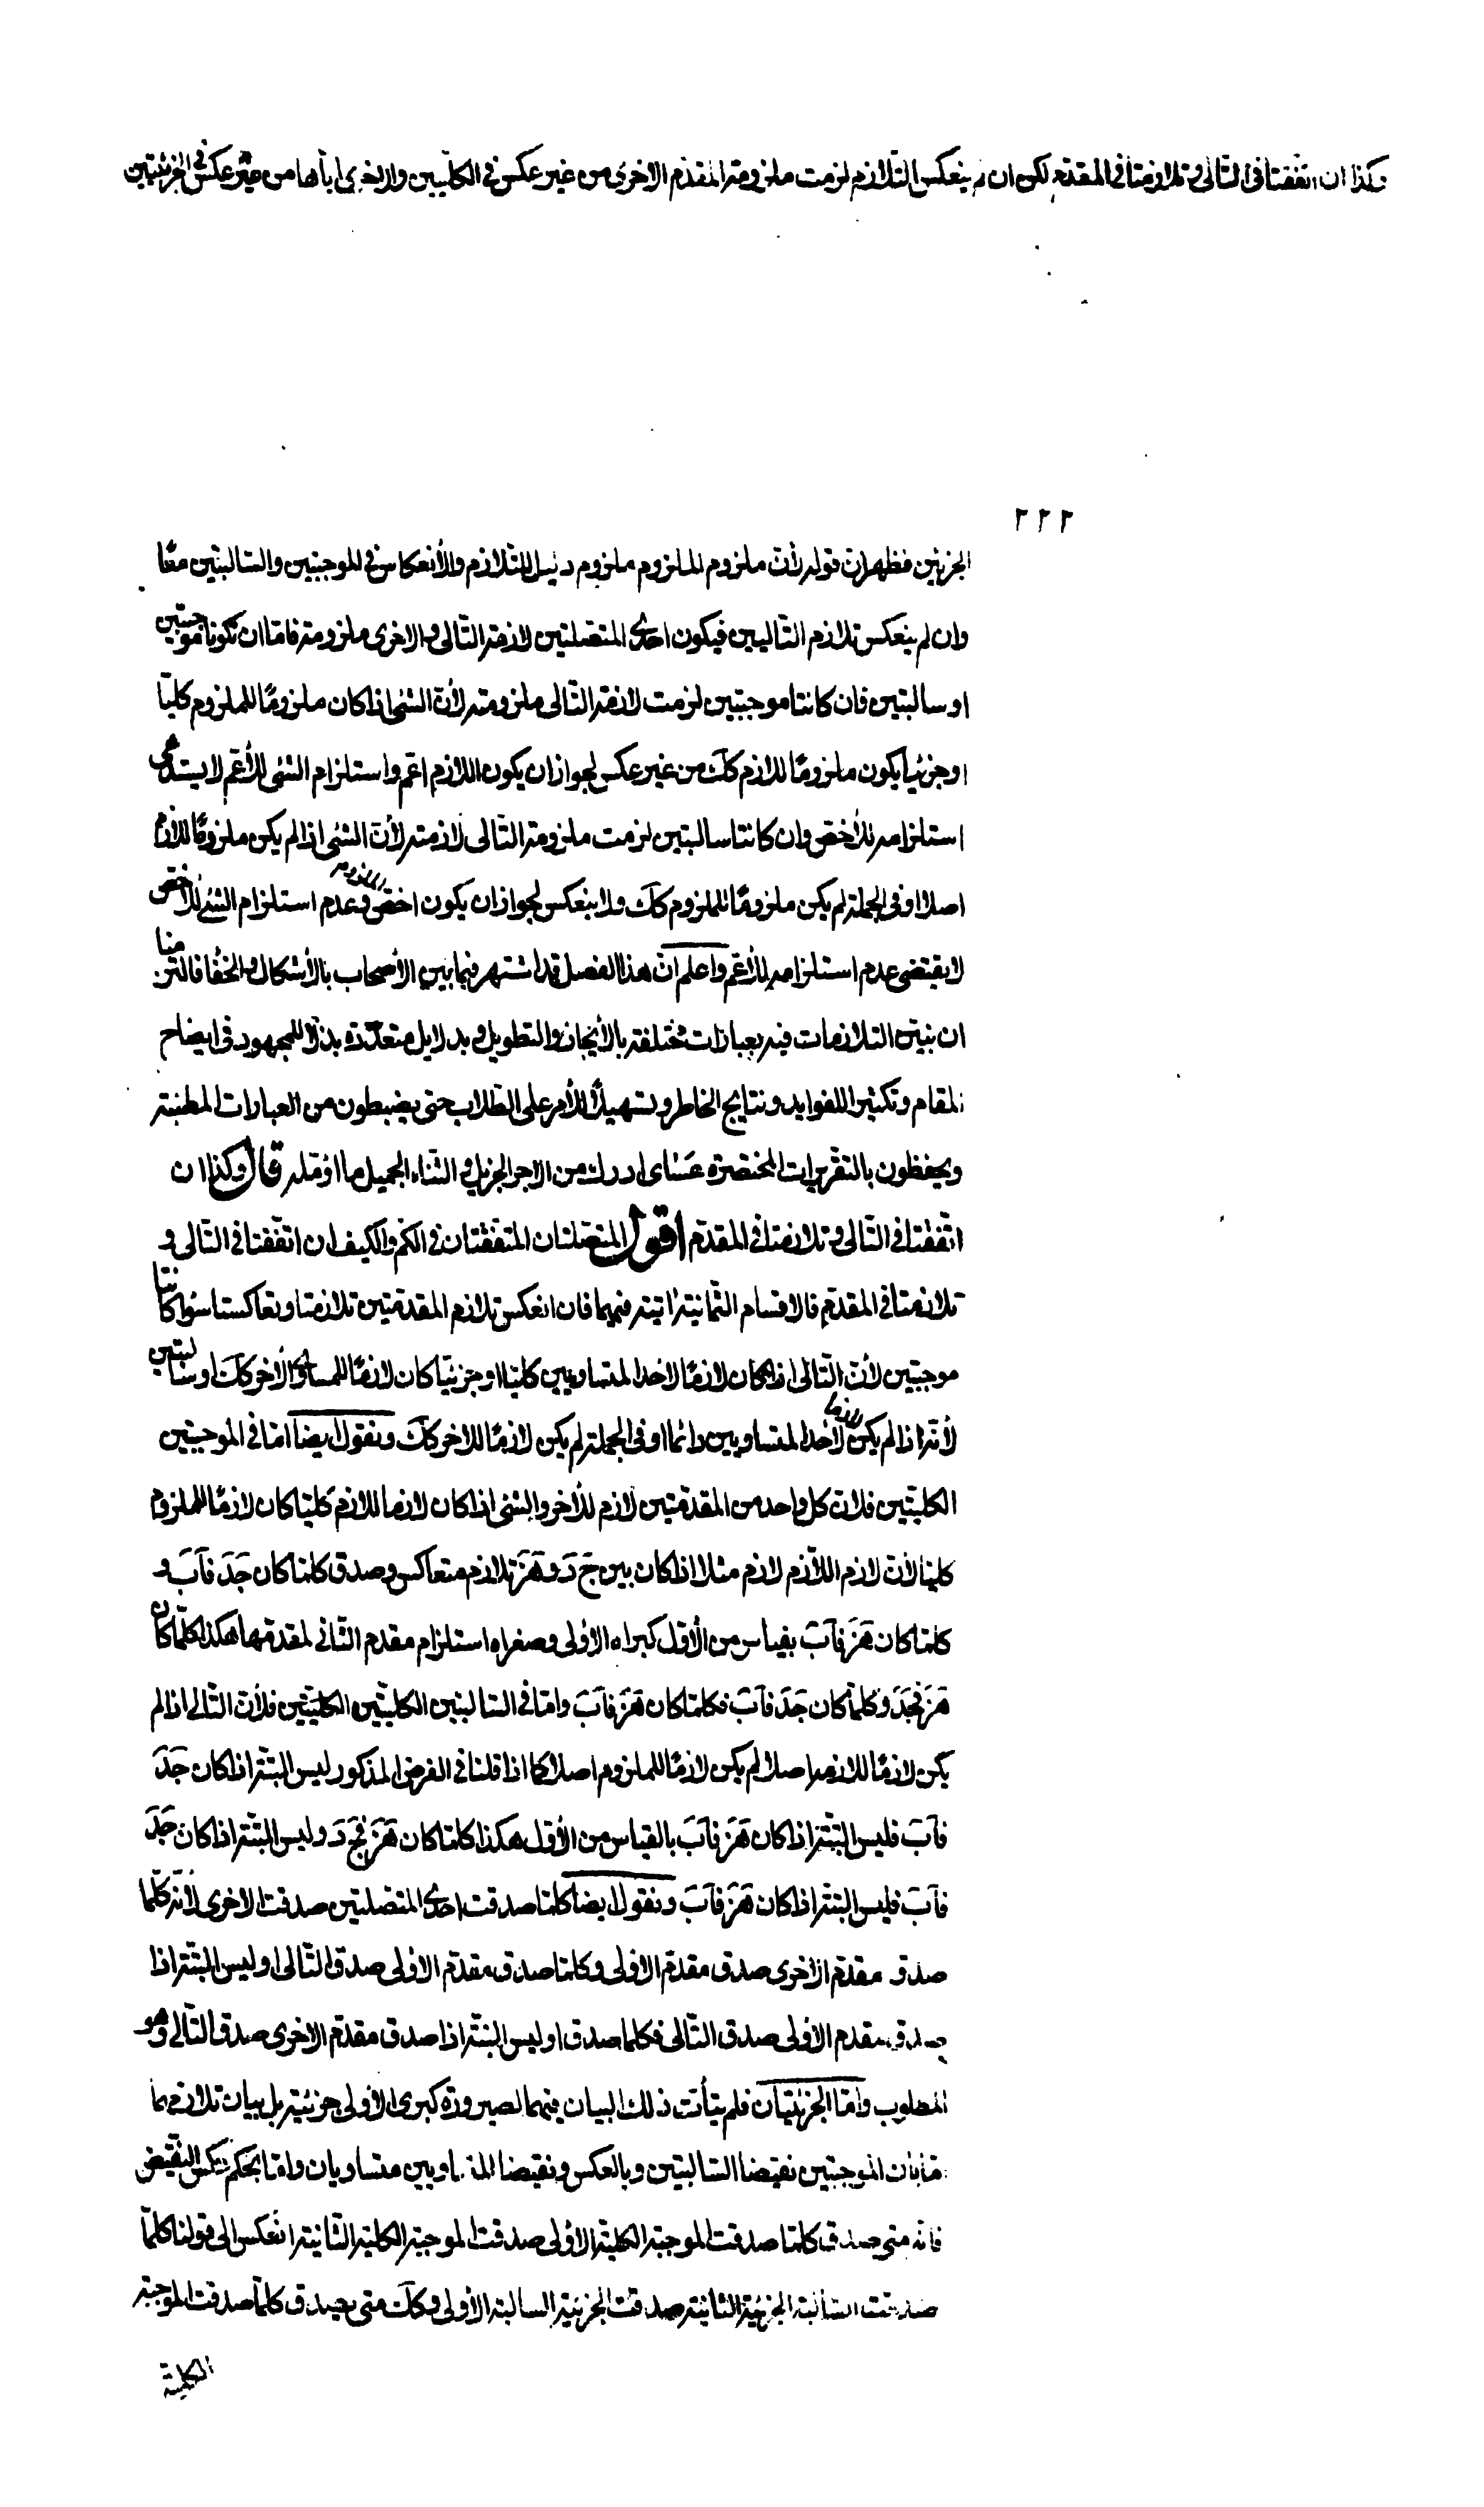 وكذا ان اتفقتا فى التالى وتلازمتا فى المقدم لكن ان لم ينعكس التلازم لزمت ملزومة المقدم الاخرى من غير عكس فى الكليتين والاخرى اياها من غير عكس فى الجزئيتين
٢٢٢
الجزئين فظهر ان قوله لأن ملزوم الملزوم ملزوم دليل للتلازم والأنعكاس فى الموجبتين والسالبتين معًا
وان لم ينعكس تلازم التاليين فيكون احدى المتصلتين لازمة التالى والاخرى ملزومته فاما ان تكونا موجبتين
او سالبتين فان كانتا موجبتين لزمت لازمة التالى ملزومته لأن الشئ اذا كان ملزومًا للملزوم كليًا
او جزئيا يكون ملزومًا للازم كك من غير عكس لجواز ان يكون اللازم اعم واستلزام الشئ للأعم لا يستدعى
استلزامه للأخص وان كانتا سالبتين لزمت ملزومة التالى لازمته لأن الشئ اذا لم يكن ملزومًا للازم
اصلا او فى الجملة لم يكن ملزومًا للملزوم كك ولا ينعكس لجواز ان يكون الملزوم اخص وعدم استلزام الشئ للأخص
لا يقتضى عدم استلزامه للأعم واعلم ان هذا الفصل قد اشتهر فيما بين الأصحاب بالأشكال والخفا فالتزمنا
ان نبين التلازمات فيه بعبارات مختلفة بالأيجاز والتطويل وبدلايل متعددة بذلا للمجهود فى ايضاح
المقام وتكثيرا للفوايد ونتايج الخاطر وتسهيلاً للأمر على الطلاب حتى يضبطون من العبارات المطنبة
ويحفظون بالتقريرات المختصرة عساى ادرك من الاجر الجزيل والثناء الجميل ما اؤمله قال وكذا ان
اتفقتا فى التالى وتلازمتا فى المقدم اقول المتصلتان المتفقتان فى الكم والكيف ان اتفقتا فى التالى و
تلازمتا فى المقدم فالاقسام الثمانية اتية فيهما فان انعكس تلازم المقدمتين تلازمتا وتعاكستا سواء كانتا
موجبتين لأن التالى اذا كان لازمًا لاحد المتساويين كليا او جزئيا كان لازمًا للمساوى الأخر كك او سالبتين
لأنه اذا لم يكن لازما لأحد المتساويين دائما او فى الجملة لم يكن لازمًا للاخر كك ونقول ايضا اما فى الموجبتين
الكليتين فلان كل واحد من المقدمتين لازم للأخر والشئ اذا كان لازما للازم كليا كان لازمًا للملزوم
كليا لأن لازم اللازم لازم مثلا اذا كان بين ج د و ه ز تلازم متعاكس وصدق كلما كان ج د فآ ب و
كلما كان ه ز فآ ب بقياس من الأول كبراه الاولى وصغراه استلزام مقدم الثانى لمقدمها هكذا كلما كان
ه ز فج د وكلما كان ج د فآ ب فكلما كان ه ز فآ ب واما فى السالبتين الكليتين الكليتين فلأن التالى اذا لم
يكن لازمًا للازم اصلا لم يكن لازمًا للملزوم اصلا كما اذا قلنا فى الفرض المذكور ليس البتة اذا كان ج د
فآ ب فليس البتة اذا كان ه ز فآ ب بالقياس من الأول هكذا كلما كان ه ز فج د وليس البتة اذا كان ج د
فآ ب فليس البتة اذا كان ه ز فآ ب ونقول ايضا كلما صدقت احدى المتصلتين صدقت الاخرى لأنه كلما
صدق مقدم الاخرى صدق مقدم الاولى وكلما صدق مقدم الاولى صدق التالى او ليس البتة اذا
صدق مقدم الاولى صدق التالى فكلما صدق او ليس البتة اذا صدق مقدم الاخرى صدق التالى وهو
المطلوب واما الجزئيتان فلم يتأت ذلك البيان فيهما لصيرورة كبرى الاولى جزئية بل بيان تلازمهما
اما بان الموجبتين نقيضا السالبتين وبالعكس ونقيضا المتساويين متساويان واما بحكم عكس النقيض
فانه متى صدق كلما صدقت الموجبة الكلية الاولى صدقت الموجبة الكلية الثانية انعكس الى قولنا كلما
صدقت السالبة الجزئية الثانية صدقت الجزئية السالبة الأولى وكك متى يصدق كلما صدقت الموجبة
الكلية